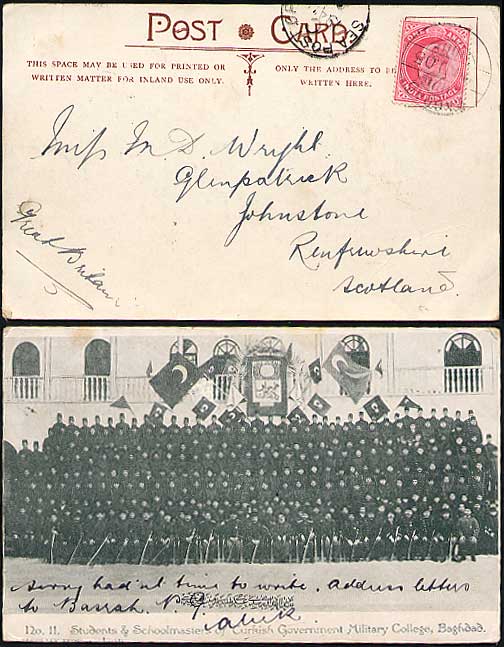 POST CARD
THIS SPACE MAY BE USED FOR PRINTED OR
WRITTEN MATTER FOR INLAND USE ONLY.
ONLY THE ADDRESS TO BE
WRITTEN HERE.
SEA POST OF
ONE ANNA
INDIA POSTAGE
Miss M D. Wright.
Glenpatrick
Johnstone
Renfrewshire
Scotland.
Great Britain
Sorry had'nt time to write. Address letters
to Basrah.
No. 11. Students & Schoolmasters of Turkish Government Military College, Baghdad.